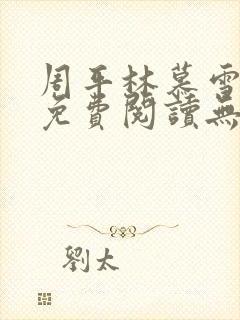 周平林慕雪
免費閱讀無
劉太